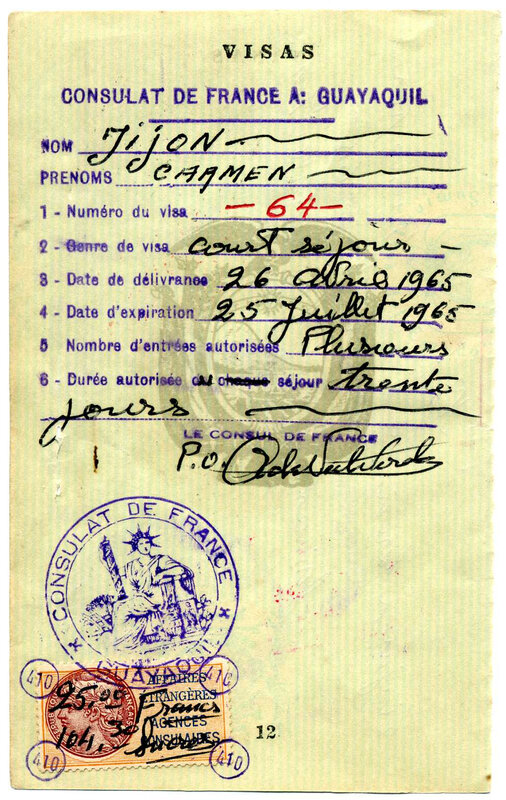 VISAS
CONSULAT DE FRANCE A: GUAYAQUIL
NOM JIJON
PRENOMS CARMEN
1 - Numéro du visa - 64 -
2 - Genre de visa court séjour -
3 - Date de délivrance 26 abril 1965
4 - Date d'expiration 25 Juillet 1965
5 Nombre d'entrées autorisées Plusieurs
6 - Durée autorisée du chaque séjour trente
jours
LE CONSUL DE FRANCE
P.O.
CONSULAT DE FRANCE
GUAYAQUIL
410 410
AFFAIRES
ETRANGÈRES
25,00 Francs
AGENCES
104,30 Sucres
CONSULAIRES
410 410
12